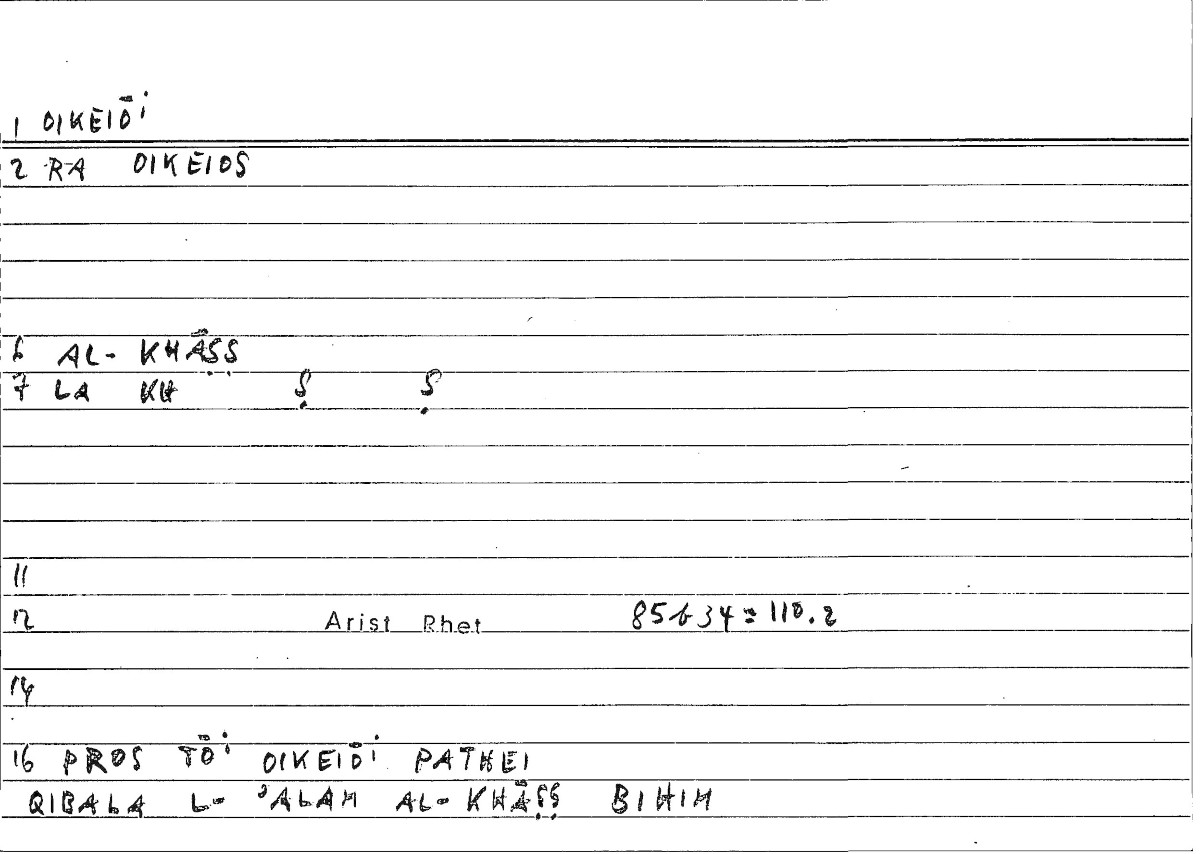 1 OIKEIŌⁱ
2 RA OIKEIOS
6 AL- KHĀṢṢ
7 LA KH Ṣ Ṣ
11
12 Arist Rhet 85b34=110.2
14
16 PROS TŌⁱ OIKEIŌⁱ PATHEI
QIBALA L- ʾALAM AL- KHĀṢṢ BIHIM